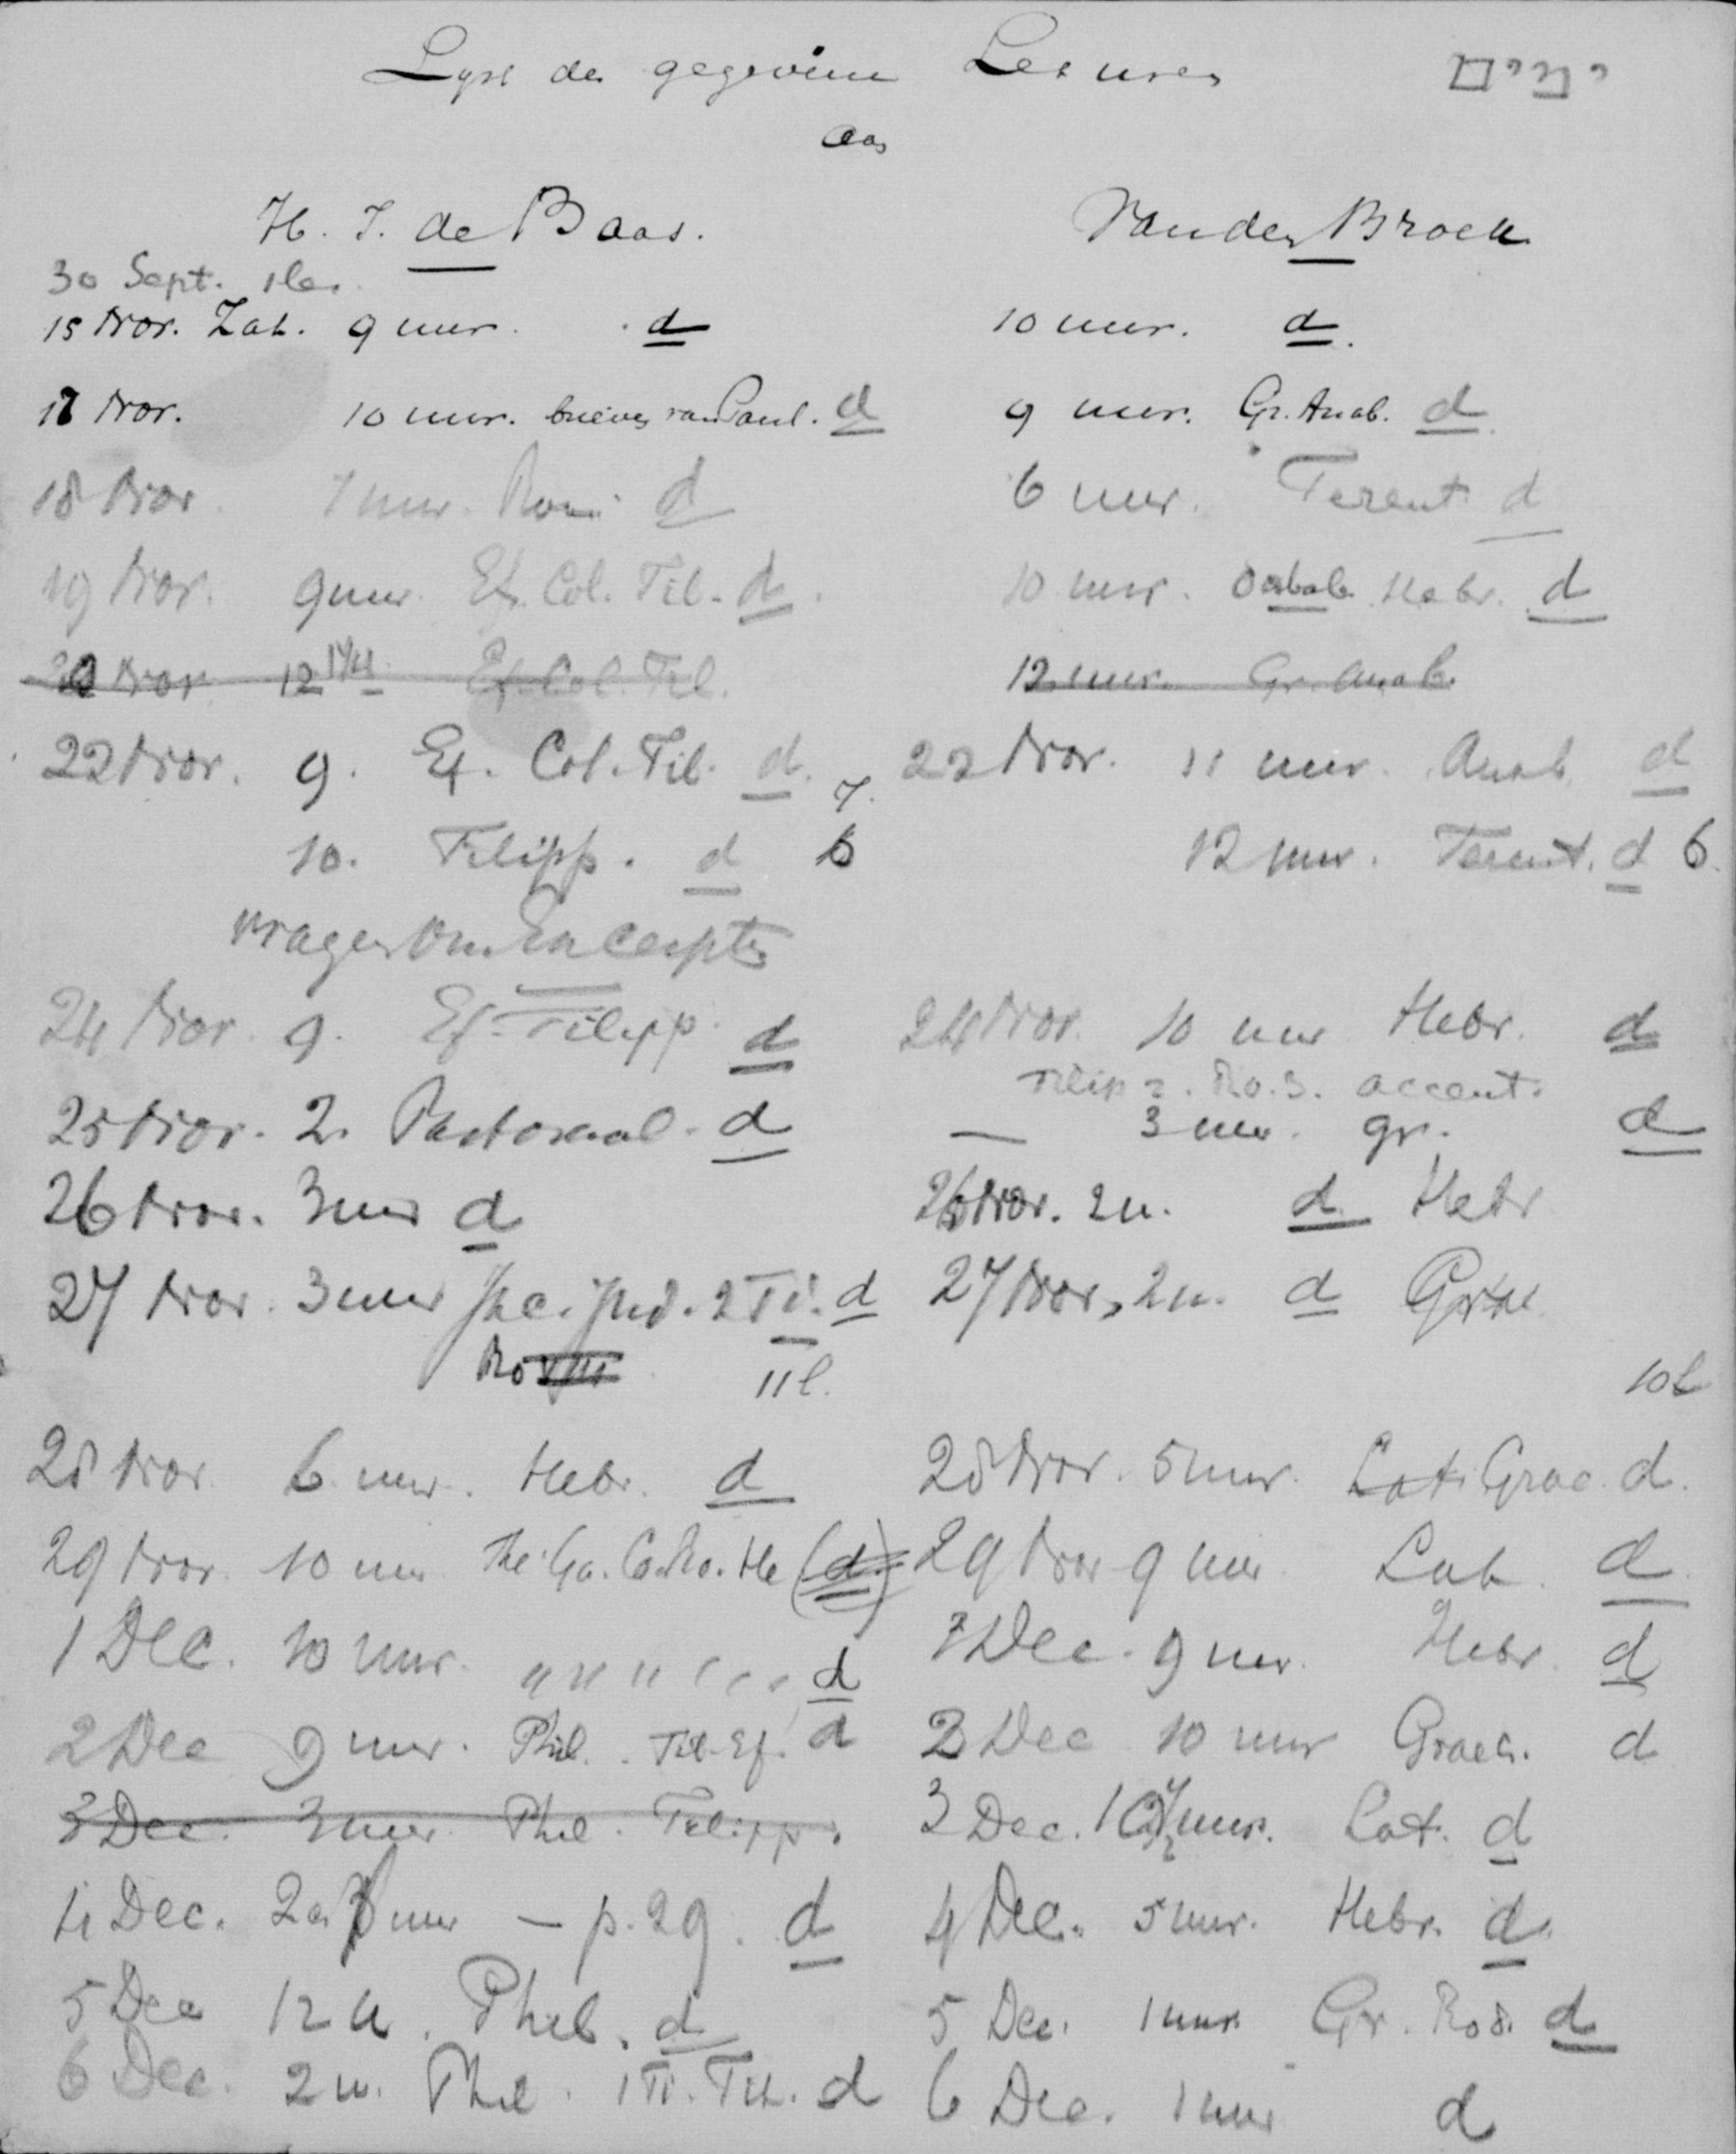 Lyst der gegeven Lesuren
aan
H. J. de Baas. Van den Broek
30 Sept. 1les.
15 Nov. Zat. 9 uur. d 10 uur. d.
17 Nov. 10 uur. brieven van Paul. d 9 uur. Gr. Anab. d
18 Nov. 7 uur. Rom. d 6 uur. Terent. d
19 Nov. 9 uur. Ef. Col. Fil. d. 10 uur. Hebr. d
Nov. 12 Ef. Col. Fil. 12 uur. Gr. Anab.
22 Nov. 9. Ef. Col. Fil. d. 7. 22 Nov. 11 uur. Anab. d
10. Filipp. d 6 12 uur. Terent. d 6.
vragen om Excerpten
24 Nov. 9. Ef. Filipp. d 24 Nov. 10 uur Hebr. d
Filip 2. Ro. 3. accent.
25 Nov. 2. Pastoraal. d — 3 uur. gr. d
26 Nov. 3 uur d 26 Nov. 2 u. d Hebr
27 Nov. 3 uur 2 Ti. d 27 Nov, 2 u. d Grae
Ro 11 l. 10 l
28 Nov. 6 uur. Hebr. d 28 Nov. 5 uur. Lat. Grae. d.
29 Nov. 10 uur The. Ga. Co. Ro. He (d.) 29 Nov 9 uur Lat. d.
1 Dec. 10 uur. " " " " " " d 1 Dec. 9 uur. Hebr. d
2 Dec 9 uur. Phil. Fil. Ef. d 2 Dec 10 uur Graec. d
3 Dec. 3 uur Phil. Filipp. 3 Dec. 10 1/2 uur. Lat. d
4 Dec. 2 uur — p. 29. d 4 Dec. 5 uur. Hebr. d.
5 Dec 12 u. Phil. d 5 Dec. 1 uur Gr. Ro 8. d
6 Dec. 2 u. Phil. 1 Ti. Tit. d 6 Dec. 1 uur d